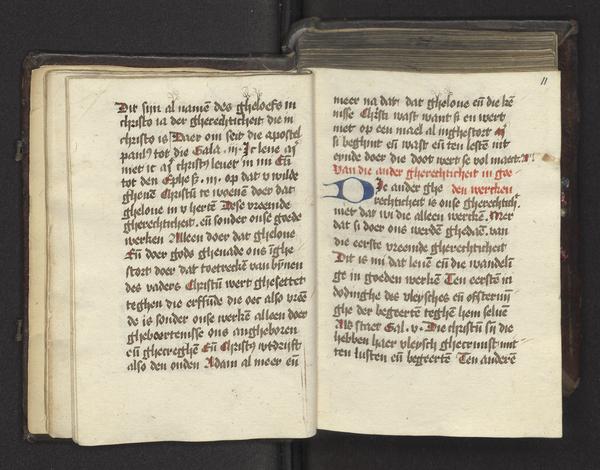 Dit sijn al namen des gheloefs in
christo ia der gherechticheit die in
christo is Daer om seit die apostel
paulꝯ tot die Gala. iij. Ic leue
met ic christꝯ leuet in mi Eñ
tot den Ephess. iij. op dat v wilde
gheuen Christū te woenen doer dat
ghelone in v herten Dese vreemde
gherechticheit. eñ sonder onse goede
werken Alleen doer dat ghelone
Eñ doer gods ghenade ons īghe
stort doer dat toetrecken van bȳnen
des vaders Christū wert ghesettet
teghen die erfsūde die oec also vrēē
de is sonder onse werkē alleen doer
gheboertenisse ons angheboren
eñ ghecreghēē Eñ Christꝯ wtdrijft
also den ouden Adam al meer eñ
11
meer na dat dat ghelone eñ die kē
nisse Christi wast want si en wert
niet op een mael al inghestort
si beghint eñ wast eñ ten lestē
eynde doer die doot wert se vol maect.
Van die ander gherechticheit in goe
den wercken
Die ander ghe
rechticheit is onse gherechtich.
niet dat wi die alleen werckē. Mer
dat si doer ons werdē ghedaē. van
die eerste vreemde gherechticheit
Dit is nu dat leuē eñ die wandelī
ge in goeden werkē Ten eerstē in
dodinghe des vleysches eñ
ghe der begeerte teghēē hem seluē
Als staet Gal. v. Die christū sij die
hebben haer vleysch ghecruust mit
ten lusten eñ begeertē Ten anderē